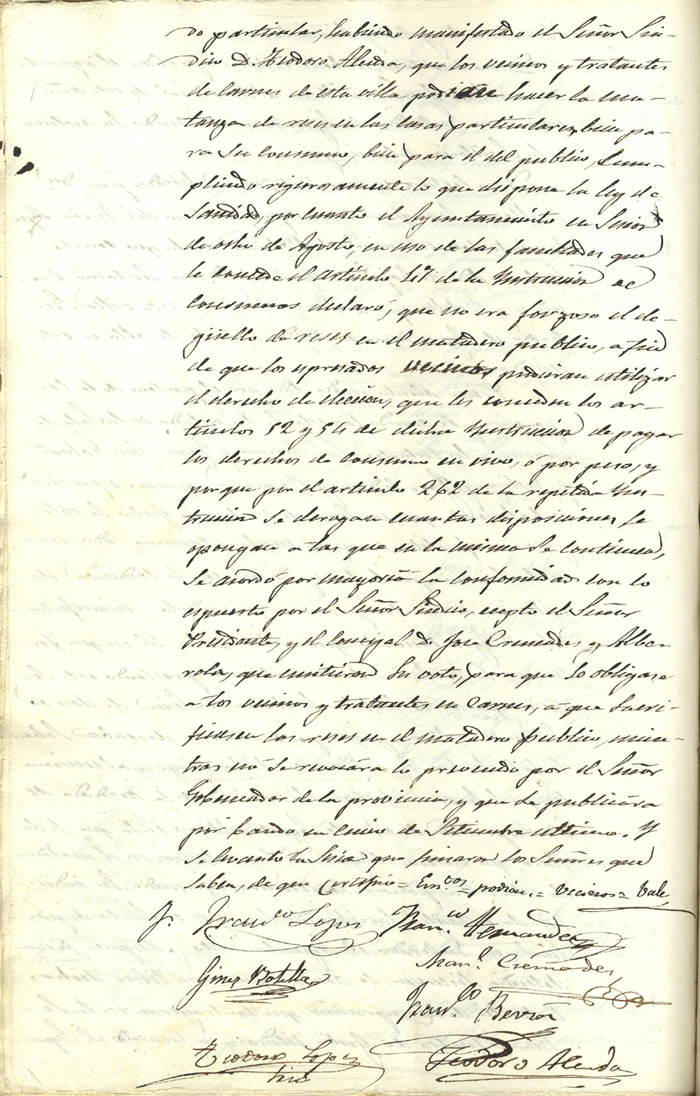 do particular, habiendo manifestado el Señor Sin-
dico D. Teodoro Alenda, que los vecinos y tratantes
de Carnes de esta villa podian hacer la ma-
tanza de reses en las casas particulares, bien pa-
ra su consumo, bien para el del publico, cum-
pliendo rigorosamente lo que dispone la ley de
Sanidad, por cuanto el Ayuntamiento en
de ocho de Agosto, en uso de las facultades que
le concede el articulo de la Instruccion de
Consumos declaró, que no era forzoso el de-
guello de reses en el matadero publico, a fin
de que los espresados vecinos pudieran utilizar
el derecho de eleccion, que les conceden los ar-
ticulos 52 y 54 de dicha Instruccion de pagar
los derechos de consumo en vivo, ó por peso, y
porque por el articulo 262 de la repetida Ins-
truccion se derogan cuantas disposiciones se
opongan a las que en la misma se contienen,
Se acordó por mayoria la conformidad con lo
espuesto por el Señor Sindico, cepto el Señor
Presidente, y el Concejal D. Jose Cremades y Albe-
rola, que emitieron su voto, para que se obligase
a los vecinos y tratantes en Carnes, a que sacri-
ficasen las reses en el matadero publico, mien-
tras no se revocára lo prevenido por el Señor
Gobernador de la provincia, y que se publicára
por bando en cinco de Setiembre ultimo. Y
se levantó la Sesion que firmaron los Señores que
saben, de que certifico = podian = vecinos = Vale
Franco Lopez Franco Hernandez
Manl Cremades
Gines Botella
Franco
Teodoro Lopez Teodoro Alenda